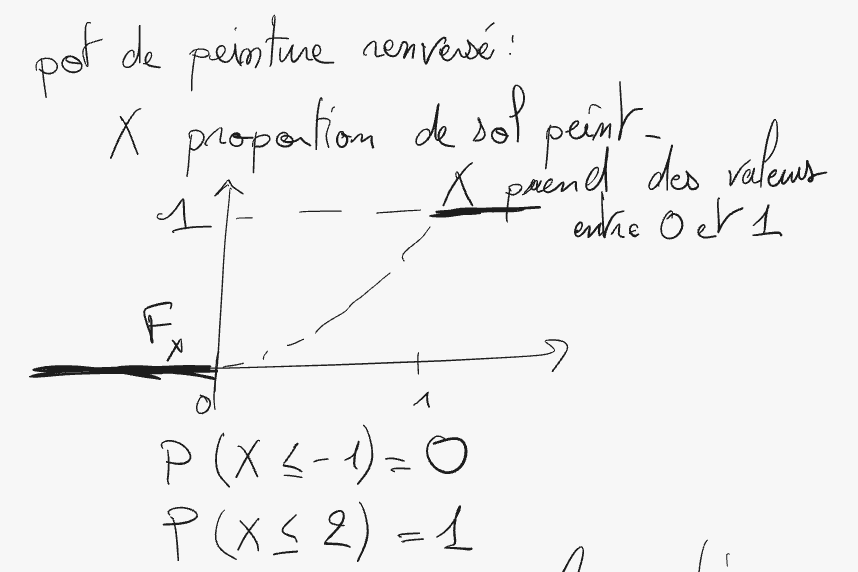 pot de peinture renversé :
X proportion de sol peint.
X prend des valeurs
entre 0 et 1
1
F_X
0
1
P(X ≤ -1) = 0
P(X ≤ 2) = 1